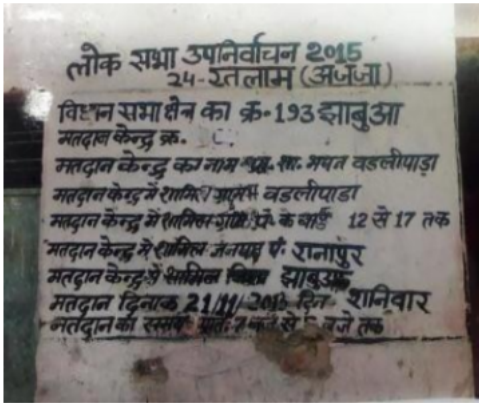 लोक सभा उपनिर्वाचन 2015
24-रतलाम (अजजा)
विधान सभा क्षेत्र का क्र.193 झाबुआ
मतदान केन्द्र क्र.
मतदान केन्द्र का नाम शा. भवन वडलीपाड़ा
मतदान केन्द्र में शामिल वडलीपाडा
मतदान केन्द्र में शामिल के वार्ड 12 से 17 तक
मतदान केन्द्र में शामिल जनपद पं. रानापुर
मतदान केन्द्र में शामिल जिला झाबुआ
मतदान दिनांक 21/11/ दिन शनिवार
मतदान का समय प्रातः 7 बजे से बजे तक